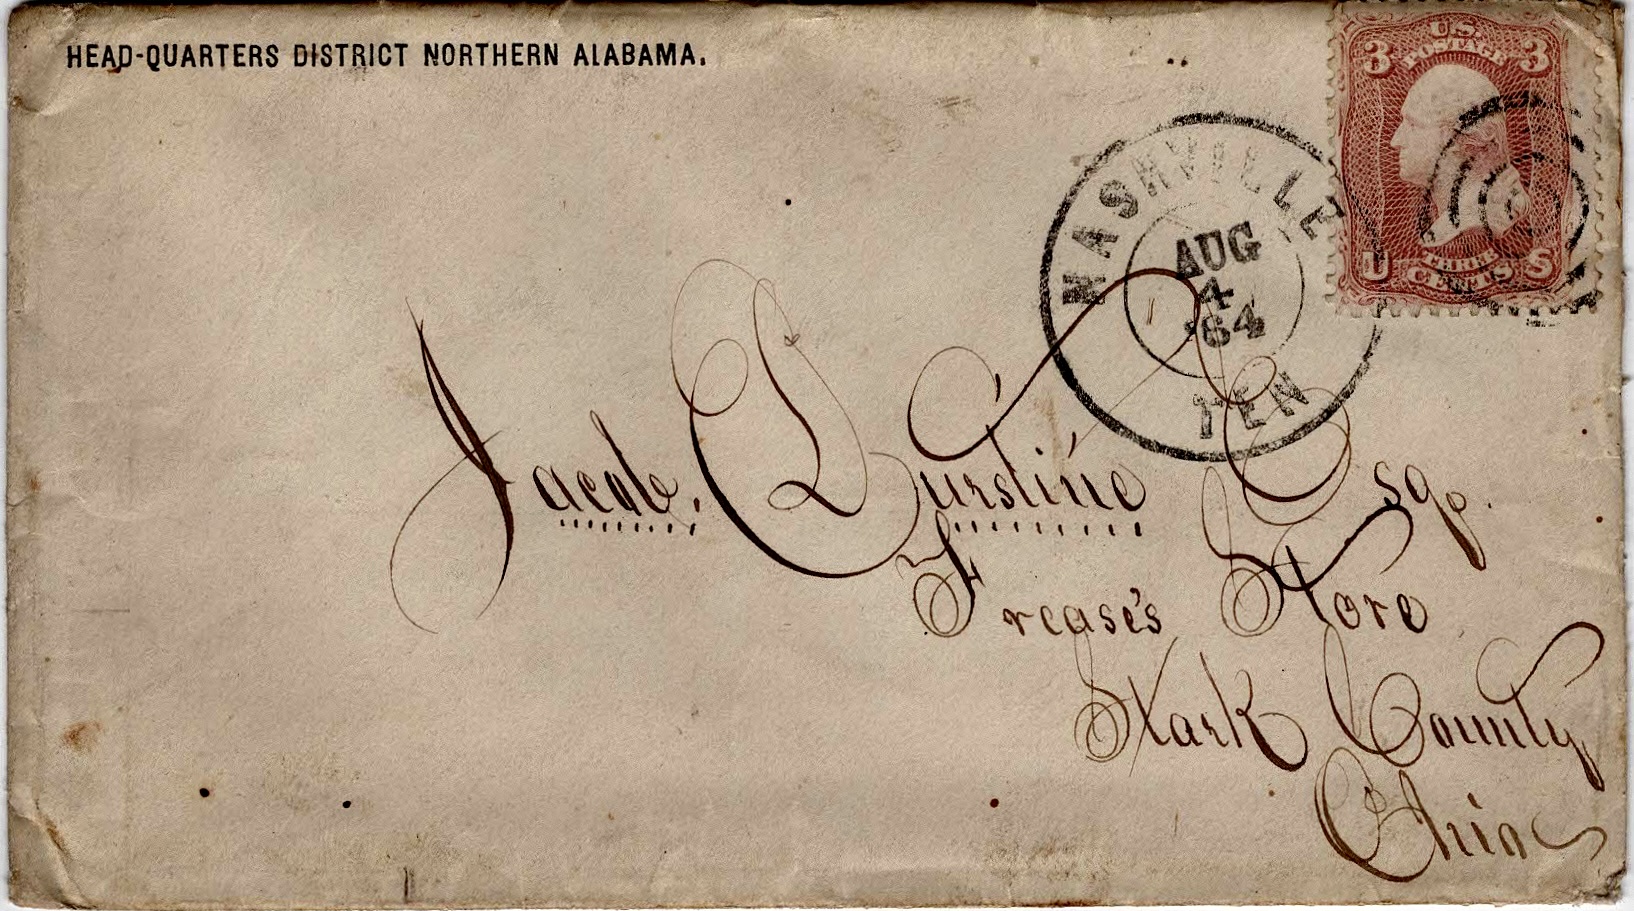 HEAD-QUARTERS DISTRICT NORTHERN ALABAMA.
3 U.S. POSTAGE 3
U THREE CENTS S
NASHVILLE
AUG
4
'64
TEN
Jacob. Durstine Esqr.
Frease's Store
Stark County
Ohio